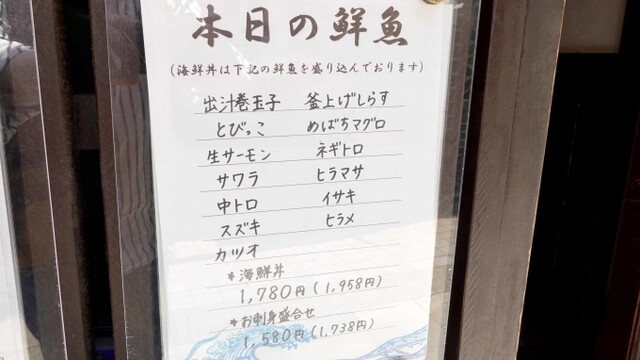 本日の鮮魚
(海鮮丼は下記の鮮魚を盛り込んでおります)
出汁巻玉子 釜上げしらす
とびっこ めばちマグロ
生サーモン ネギトロ
サワラ ヒラマサ
中トロ イサキ
スズキ ヒラメ
カツオ
*海鮮丼
1,780円(1,958円)
*お刺身盛合せ
1,580円(1,738円)